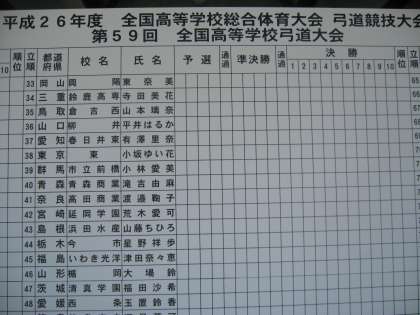 平成26年度 全国高等学校総合体育大会 弓道競技大会
第59回 全国高等学校弓道大会
順位 立順 都道府県 校名 氏名 予選 通過 準決勝 通過 決勝 順位 立順
10 1 2 3 4 5 6 7 8 9 10
33 岡山 興陽 東奈美 65
34 三重 鈴鹿高専 寺田美花
35 鳥取 倉吉西 山本璃奈
36 山口 柳井 平井はるか
37 愛知 春日井東 有澤里奈
38 東京 東 小坂ゆい花
39 群馬 市立前橋 小林愛美
40 青森 青森商業 滝吉由麻
41 奈良 高田商業 渡邉鞠子
42 宮崎 延岡学園 荒木愛可
43 島根 浜田水産 山藤ちひろ
44 栃木 今市 星野祥歩
45 福島 いわき光洋 津田奈々恵
46 山形 楯岡 大場鈴
47 茨城 清真学園 福田沙希
48 愛媛 西条 玉置鈴香